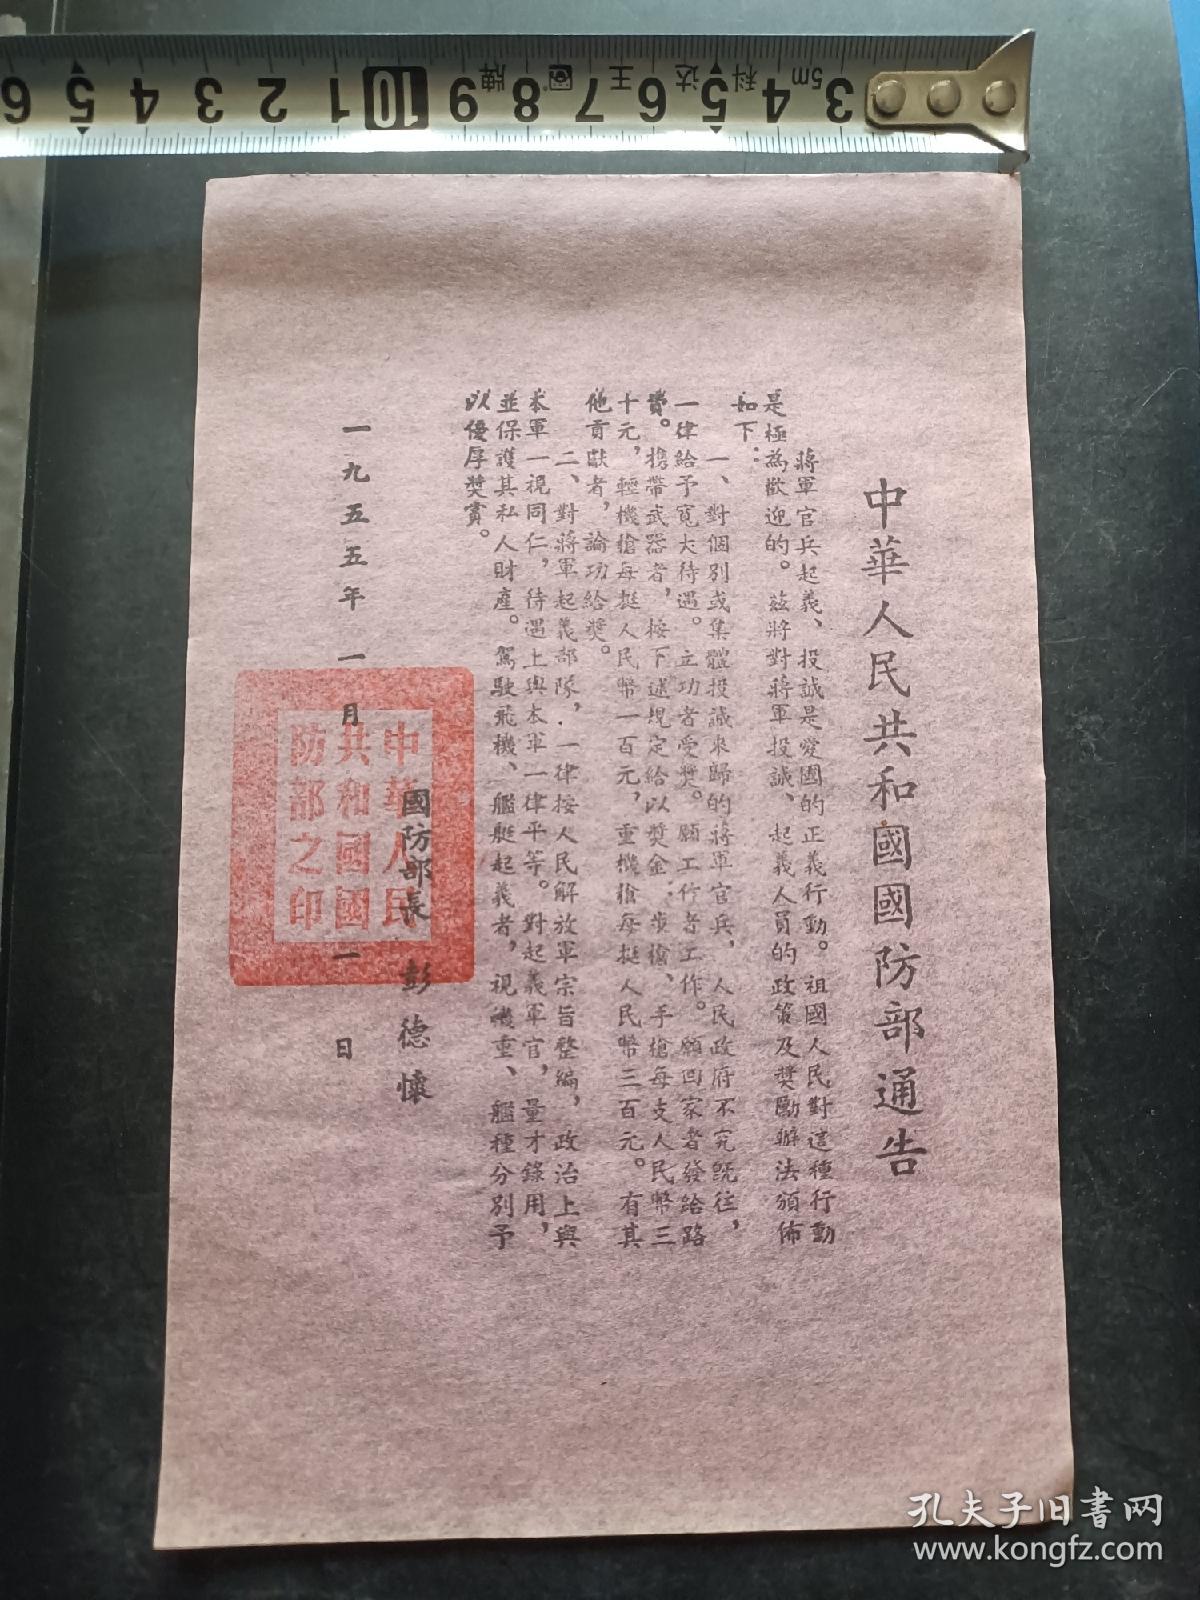 中華人民共和國國防部通告
蔣軍官兵起義、投誠是愛國的正義行動。祖國人民對這種行動
是極為歡迎的。茲將對蔣軍投誠、起義人員的政策及奬勵辦法頒佈
如下：
一、對個別或集體投誠來歸的蔣軍官兵，人民政府不究既往，
一律給予寬大待遇。立功者受奬。願工作者工作。願回家者發給路
費。携帶武器者，按下述規定給以奬金：步槍、手槍每支人民幣三
十元，輕機槍每挺人民幣一百元，重機槍每挺人民幣三百元。有其
他貢獻者，論功給奬。
二、對蔣軍起義部隊，一律按人民解放軍宗旨整編，政治上與
本軍一視同仁，待遇上與本軍一律平等。對起義軍官，量才錄用，
並保護其私人財產。駕駛飛機、艦艇起義者，視機重、艦種分別予
以優厚奬賞。
國防部長 彭德懷
一九五五年一月一日
中華人民
共和國國
防部之印
5m 科达 王 牌
3 4 5 6 7 8 9 10 1 2 3 4 5 6
孔夫子旧书网
www.kongfz.com